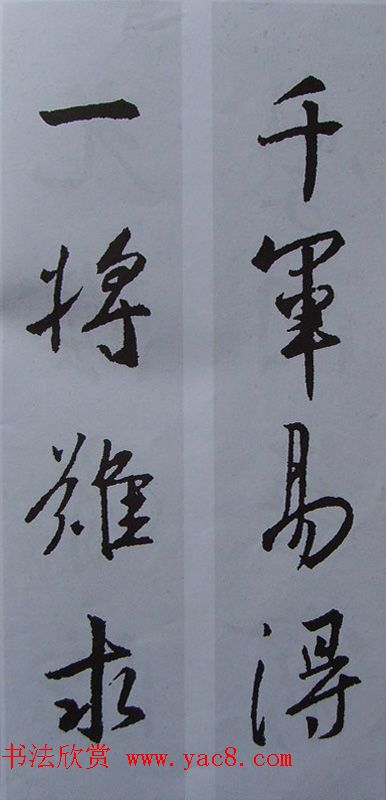 千軍易得
一將難求
书法欣赏 www.yac8.com